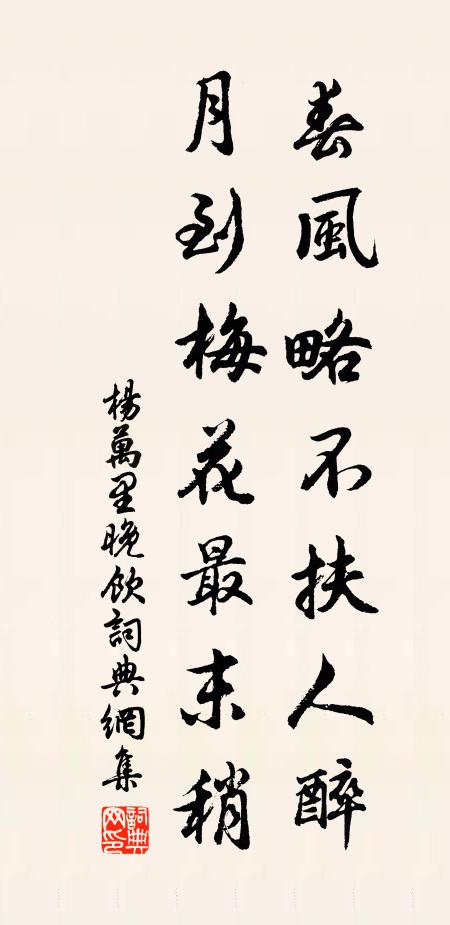 春風略不扶人醉
月到梅花最末稍
楊萬里晚飲詞典網集
詞典网印